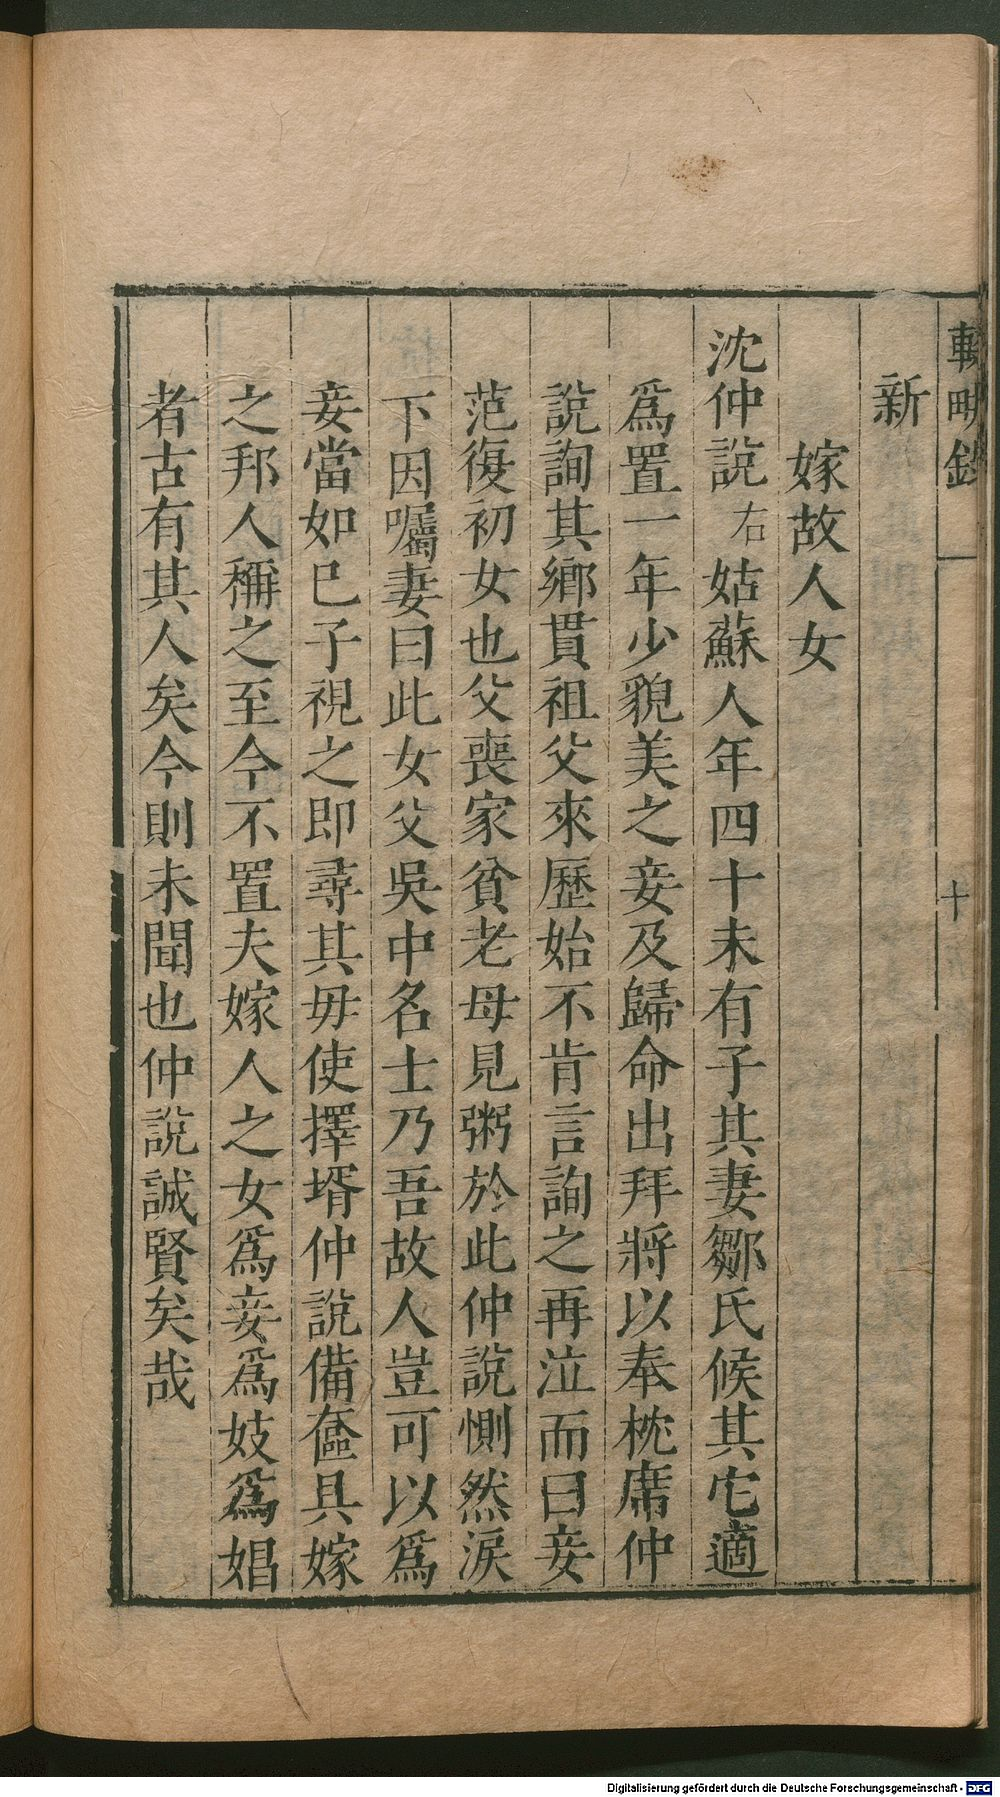 輟畊錄
十
新
嫁故人女
沈仲說右姑蘇人年四十未有子其妻鄒氏候其它適
爲置一年少貌美之妾及歸命出拜將以奉枕席仲
說詢其鄉貫祖父來歷始不肯言詢之再泣而曰妾
范復初女也父喪家貧老母見粥於此仲說惻然淚
下因囑妻曰此女父吳中名士乃吾故人豈可以爲
妾當如已子視之即尋其毋使擇壻仲說備奩具嫁
之邦人稱之至今不置夫嫁人之女爲妾爲妓爲娼
者古有其人矣今則未聞也仲說誠賢矣哉
Digitalisierung gefördert durch die Deutsche Forschungsgemeinschaft - DFG